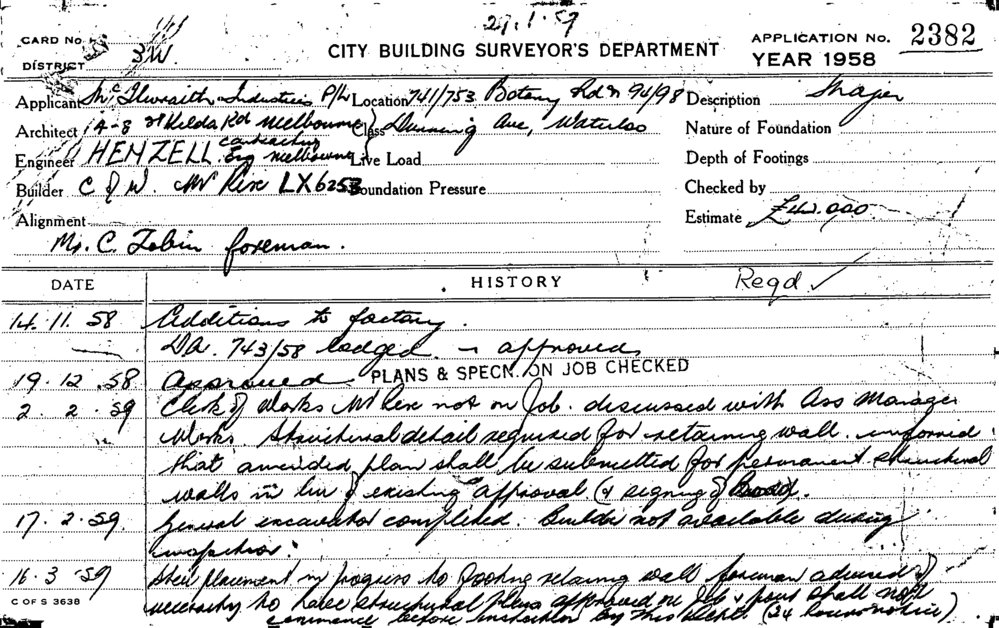 29.1.59
CARD No.
DISTRICT 3W.
CITY BUILDING SURVEYOR'S DEPARTMENT
APPLICATION No. 2382
YEAR 1958
Applicant Mc Ilwraith Industries P/L Location 741/753 Botany Rd & 94/98 Description Major
Architect 14-8 St Kilda Rd Melbourne Class Dunning Ave, Waterloo Nature of Foundation
Engineer HENZELL contracting Eng Melbourne Live Load Depth of Footings
Builder C of W. Mr Rex LX6253 Foundation Pressure Checked by
Alignment Estimate £42,000
Mr. C. Tobin foreman.
DATE HISTORY Regd ✓
14.11.58 Additions to factory.
DA. 743/58 lodged. approved
19.12.58 Approved PLANS & SPECN. ON JOB CHECKED
2.2.59 Clerk of Works Mr Rex not on Job. discussed with Ass Manager
Works. Structural detail required for retaining wall. informed
that amended plan shall be submitted for permanent structural
walls in lieu of existing approval (& signing of
17.2.59 General excavation completed. Builder not available during
inspection.
16.3.59 Steel placement in progress to footing retaining wall foreman advised of
necessity to have structural plans approved on Job & pour shall not
commence before inspection by this Dept. (24 hours notice)
C OF S 3638